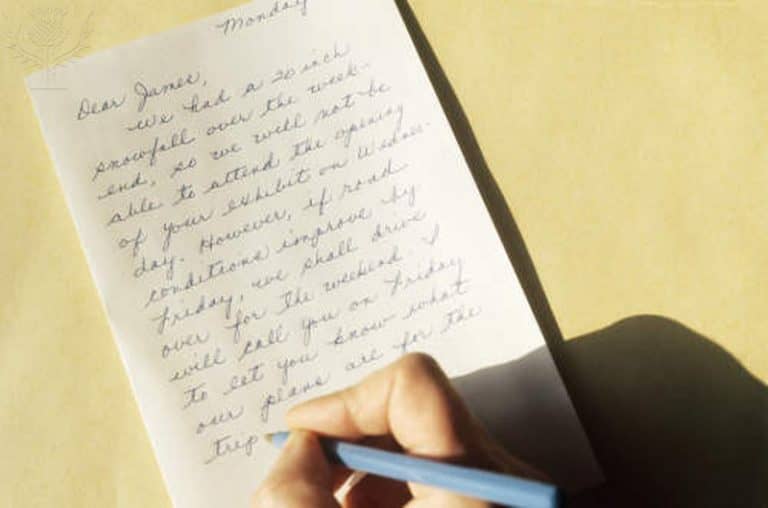 Monday
Dear James,
We had a 20 inch
snowfall over the week-
end, so we will not be
able to attend the opening
of your exhibit on Wednes-
day. However, if road
conditions improve by
Friday, we shall drive
over for the weekend. I
will call you on Friday
to let you know what
our plans are for the
trip